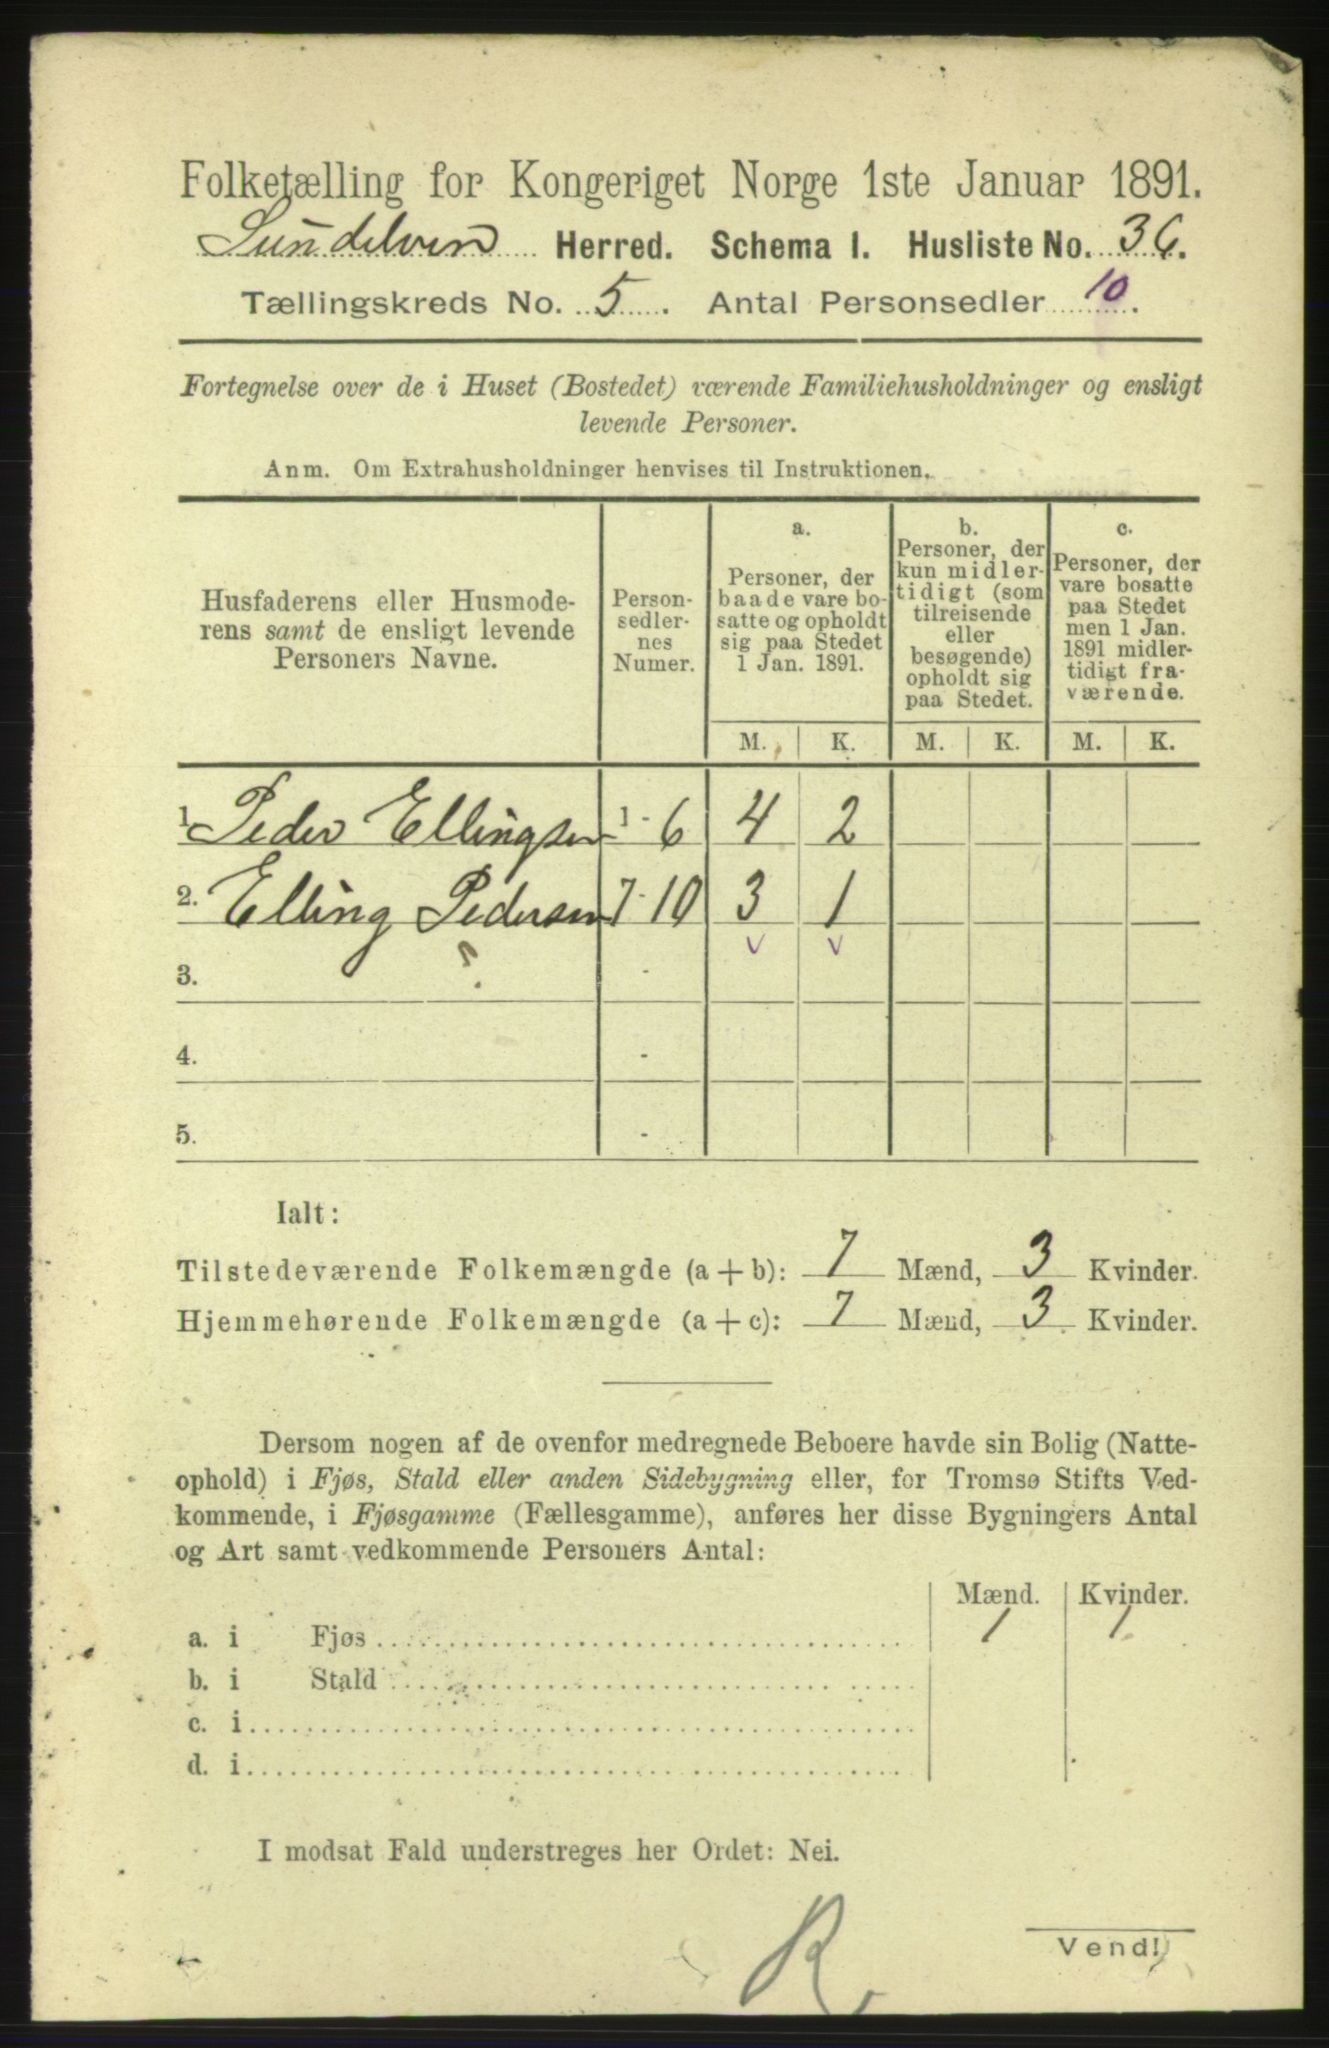 Folketælling for Kongeriget Norge 1ste Januar 1891.
Sundelven Herred. Schema I. Husliste No. 36.
Tællingskreds No. 5. Antal Personsedler 10.
Fortegnelse over de i Huset (Bostedet) værende Familiehusholdninger og ensligt
levende Personer.
Anm. Om Extrahusholdninger henvises til Instruktionen.
Husfaderens eller Husmode-
rens samt de ensligt levende
Personers Navne.
Person-
sedler-
nes
Numer.
a.
Personer, der
baade vare bo-
satte og opholdt
sig paa Stedet
1 Jan. 1891.
b.
Personer, der
kun midler-
tidigt (som
tilreisende
eller
besøgende)
opholdt sig
paa Stedet.
c.
Personer, der
vare bosatte
paa Stedet
men 1 Jan.
1891 midler-
tidigt fra-
værende.
M. K. M. K. M. K.
1. Peder Ellingsen 1-6 4 2
2. Elling Pedersen 7-10 3 1
v v
3. -
4. -
5. -
Ialt:
Tilstedeværende Folkemængde (a+b): 7 Mænd, 3 Kvinder.
Hjemmehørende Folkemængde (a+c): 7 Mænd, 3 Kvinder.
Dersom nogen af de ovenfor medregnede Beboere havde sin Bolig (Natte-
ophold) i Fjøs, Stald eller anden Sidebygning eller, for Tromsø Stifts Ved-
kommende, i Fjøsgamme (Fællesgamme), anføres her disse Bygningers Antal
og Art samt vedkommende Personers Antal:
Mænd. Kvinder.
a. i Fjøs 1 1
b. i Stald
c. i
d. i
I modsat Fald understreges her Ordet: Nei.
R.
Vend!